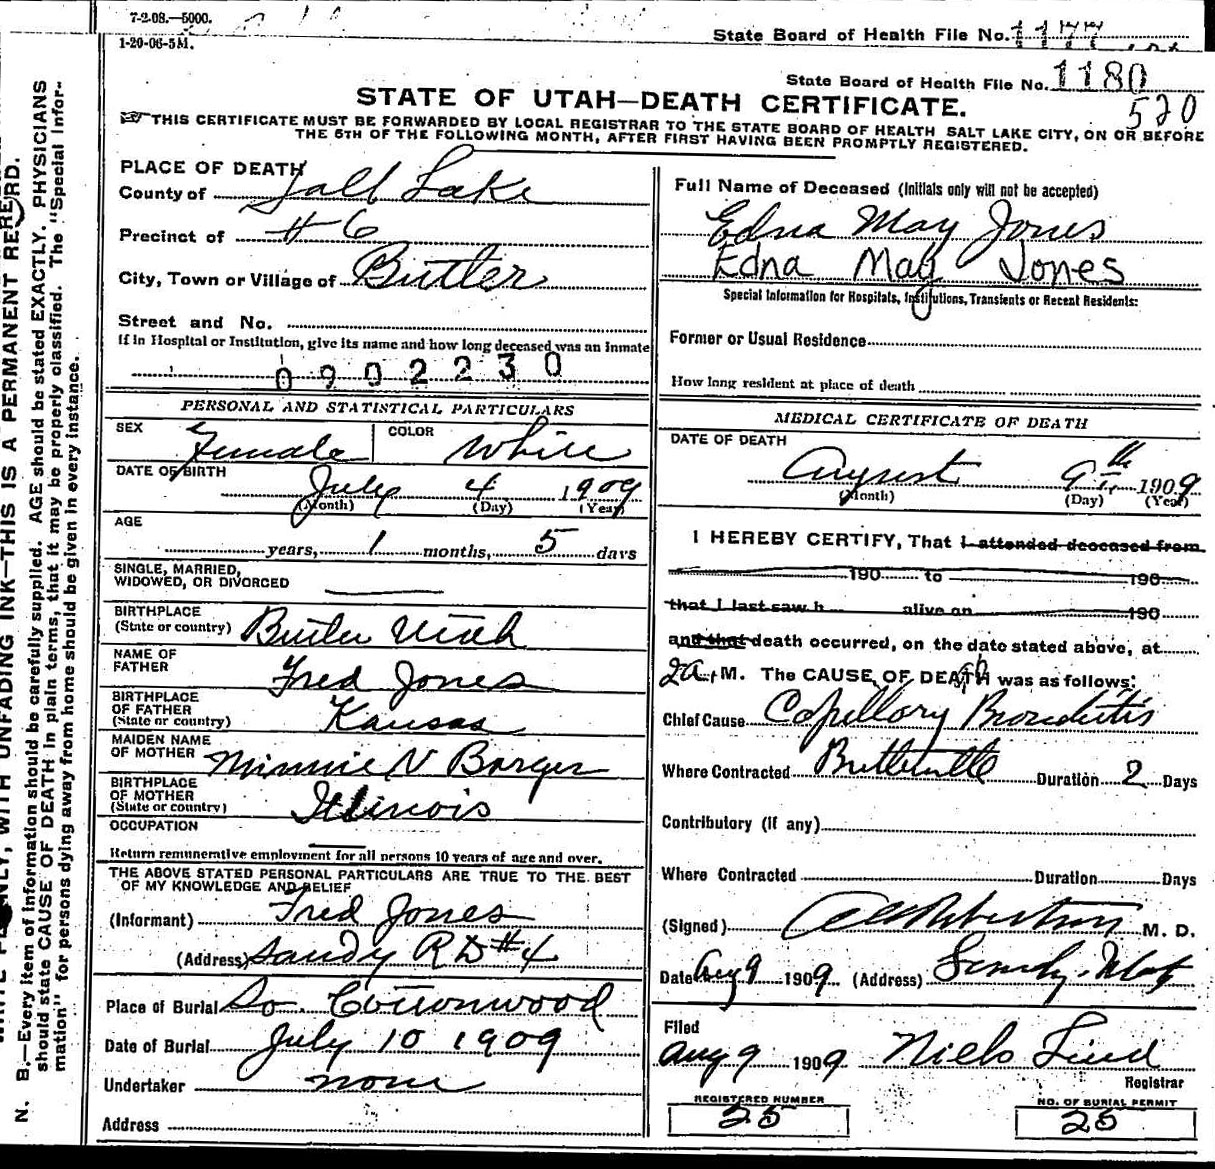 7-2-08.—5000.
State Board of Health File No. 1177
1-20-06-5M.
State Board of Health File No. 1180
520
STATE OF UTAH—DEATH CERTIFICATE.
THIS CERTIFICATE MUST BE FORWARDED BY LOCAL REGISTRAR TO THE STATE BOARD OF HEALTH SALT LAKE CITY, ON OR BEFORE
THE 5TH OF THE FOLLOWING MONTH, AFTER FIRST HAVING BEEN PROMPTLY REGISTERED.
PLACE OF DEATH
County of Salt Lake
Precinct of #6
City, Town or Village of Butler
Street and No.
If in Hospital or Institution, give its name and how long deceased was an inmate
0902230
Full Name of Deceased (Initials only will not be accepted)
Edna May Jones
Edna May Jones
Special Information for Hospitals, Institutions, Transients or Recent Residents:
Former or Usual Residence
How long resident at place of death
PERSONAL AND STATISTICAL PARTICULARS
SEX Female COLOR White
DATE OF BIRTH July 4 1909
(Month) (Day) (Year)
AGE
years, 1 months, 5 days
SINGLE, MARRIED,
WIDOWED, OR DIVORCED
BIRTHPLACE
(State or country) Butler Utah
NAME OF
FATHER Fred Jones
BIRTHPLACE
OF FATHER
(State or country) Kansas
MAIDEN NAME
OF MOTHER Minnie N Barger
BIRTHPLACE
OF MOTHER
(State or country) Illinois
OCCUPATION
Return remunerative employment for all persons 10 years of age and over.
THE ABOVE STATED PERSONAL PARTICULARS ARE TRUE TO THE BEST
OF MY KNOWLEDGE AND BELIEF
(Informant) Fred Jones
(Address) Sandy R D #4
Place of Burial So. Cottonwood
Date of Burial July 10 1909
Undertaker none
Address
MEDICAL CERTIFICATE OF DEATH
DATE OF DEATH
August 9th 1909
(Month) (Day) (Year)
I HEREBY CERTIFY, That I attended deceased from
190 to 190
that I last saw h alive on 190
and that death occurred, on the date stated above, at
2a. M. The CAUSE OF DEATH was as follows:
Chief Cause Capillary Bronchitis
Where Contracted Butlerville Duration 2 Days
Contributory (if any)
Where Contracted Duration Days
(Signed) Robertson M. D.
Date Aug 9 1909 (Address) Sandy, Utah
Filed
Aug 9 1909 Niels Lind
Registrar
REGISTERED NUMBER
25
NO. OF BURIAL PERMIT
25
UNFADING INK—THIS IS A PERMANENT RECORD.
N. B.—Every item of information should be carefully supplied. AGE should be stated EXACTLY. PHYSICIANS
should state CAUSE OF DEATH in plain terms, that it may be properly classified. The "Special Infor-
mation" for persons dying away from home should be given in every instance.